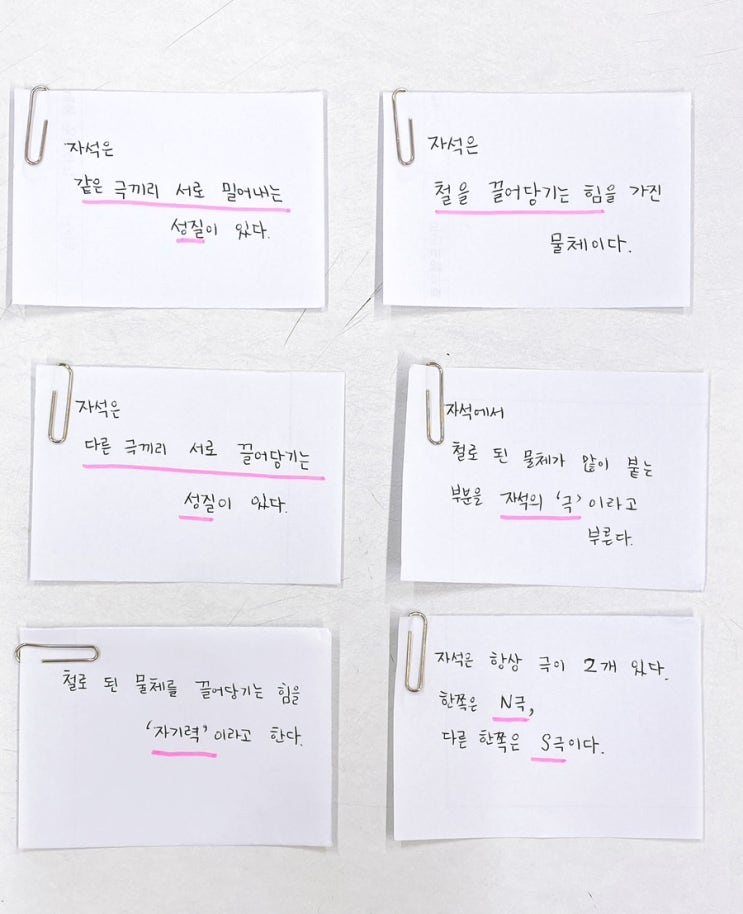 자석은
같은 극끼리 서로 밀어내는
성질이 있다.
자석은
철을 끌어당기는 힘을 가진
물체이다.
자석은
다른 극끼리 서로 끌어당기는
성질이 있다.
자석에서
철로 된 물체가 많이 붙는
부분을 자석의 '극'이라고
부른다.
철로 된 물체를 끌어당기는 힘을
'자기력'이라고 한다.
자석은 항상 극이 2개 있다.
한쪽은 N극,
다른 한쪽은 S극이다.